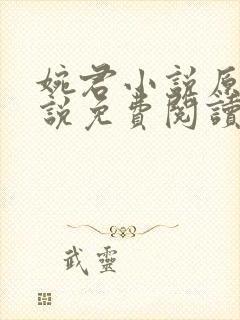 婉君小说原
說免費閱讀
武靈